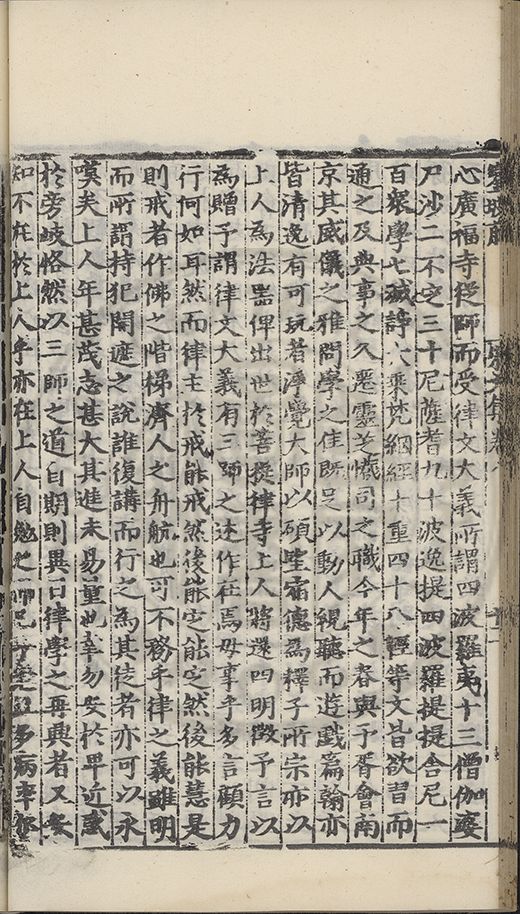 心廣福寺從師而受律文大義所謂四波羅夷十三僧伽婆
尸沙二不定三十尼薩耆九十波逸提四波羅提提舍尼一
百眾學七滅諍大乘梵網經十重四十八輕等文皆欲習而
通之及與事之久悉靈芝懺司之職今年之春與予胥會南
京其威儀之雅問學之佳既足以動人視聽而遊戲篇翰亦
皆清逸有可玩者淨覺大師以碩望宿德為釋子所宗亦以
上人為法器俾出世於菩提律寺上人將還四明徵予言以
為贈予謂律文大義有三師之述作在焉毋事乎多言顧力
行何如耳然而律主於戒能戒然後能定能定然後能慧是
則戒者作佛之階梯濟人之舟航也可不務乎律之義雖明
而所謂持犯開遮之說誰復講而行之為其徒者亦可以永
嘆矣上人年甚茂志甚大其進未易量也幸勿安於卑近惑
於旁岐恪然以三師之道自期則異日律學之再興者又安
知不在於上人乎亦在上人自勉之而已予
多病率